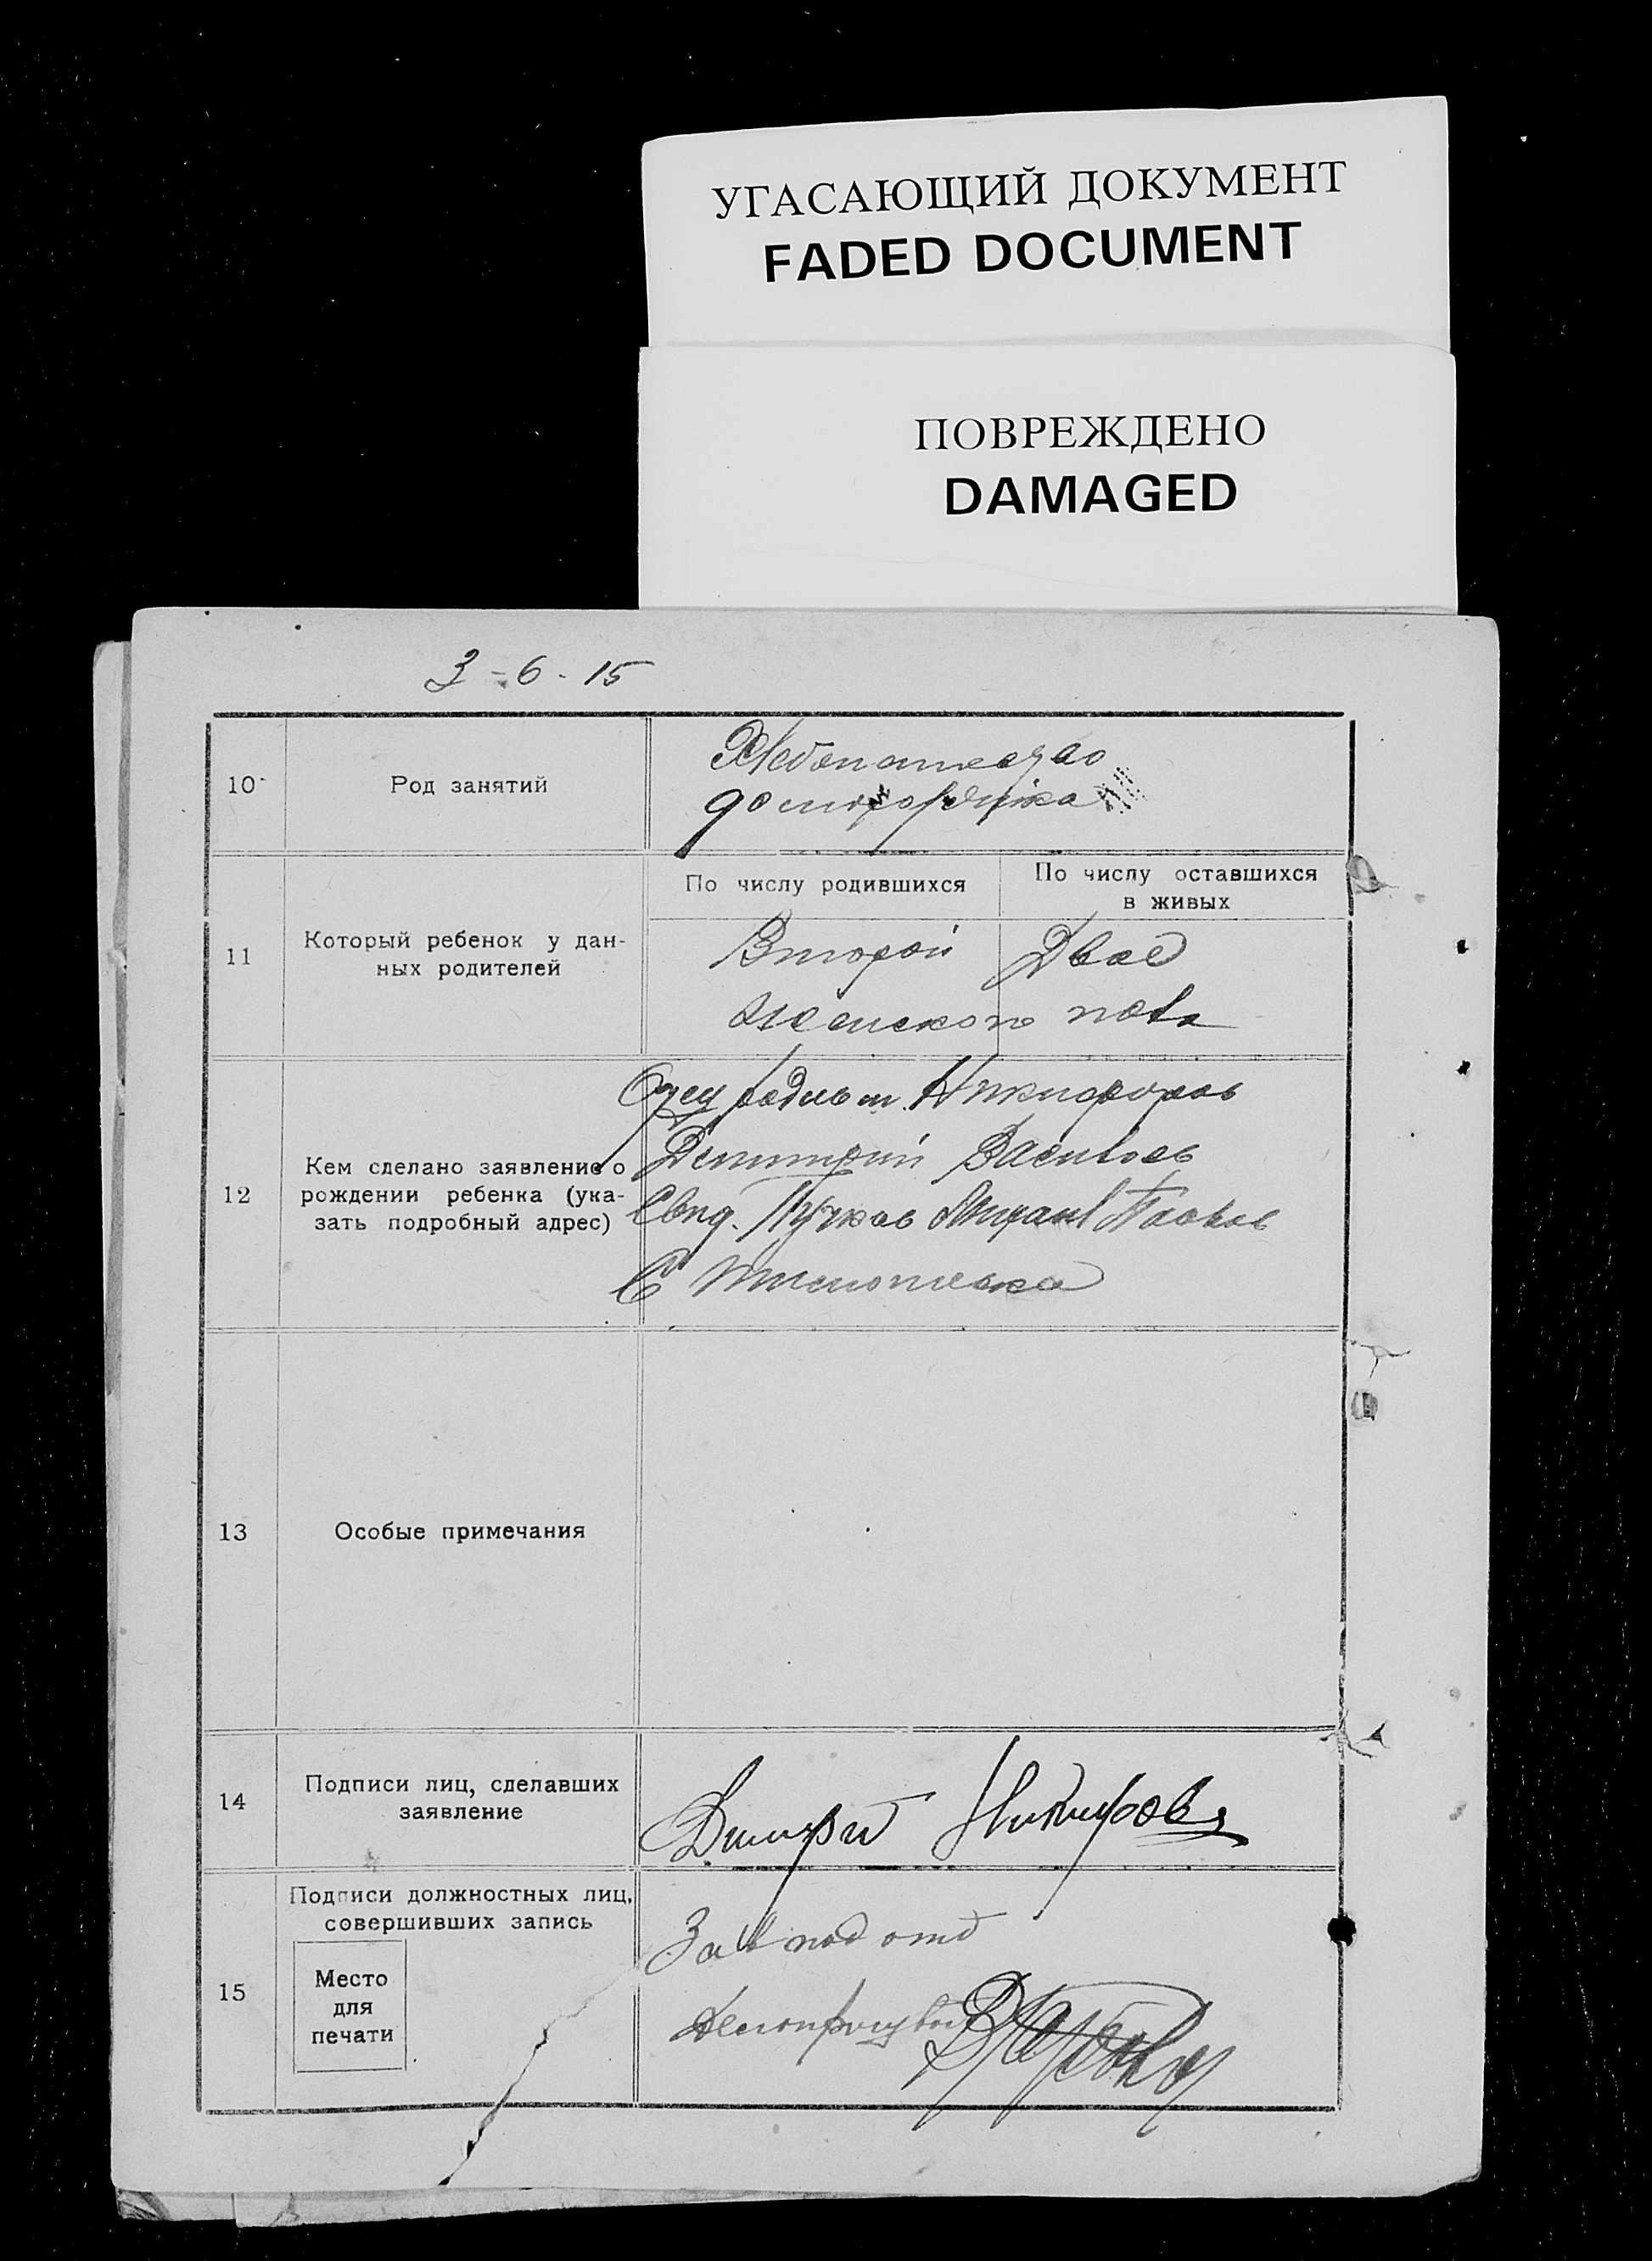 УГАСАЮЩИЙ ДОКУМЕНТ
FADED DOCUMENT
ПОВРЕЖДЕНО
DAMAGED
3-6-15
10 Род занятий
Хлебопашество
домохозяйка
11 Который ребенок у дан-
ных родителей
По числу родившихся
По числу оставшихся
в живых
Второй Двое
женского пола
12 Кем сделано заявление о
рождении ребенка (ука-
зать подробный адрес)
Отец Никифоров
Дмитрий Васильев
Свид. Пучков Михаил Павлов
С
13 Особые примечания
14 Подписи лиц, сделавших
заявление
Дмитрий Никифоров
15 Подписи должностных лиц,
совершивших запись
Место
для
печати
Зав под отд